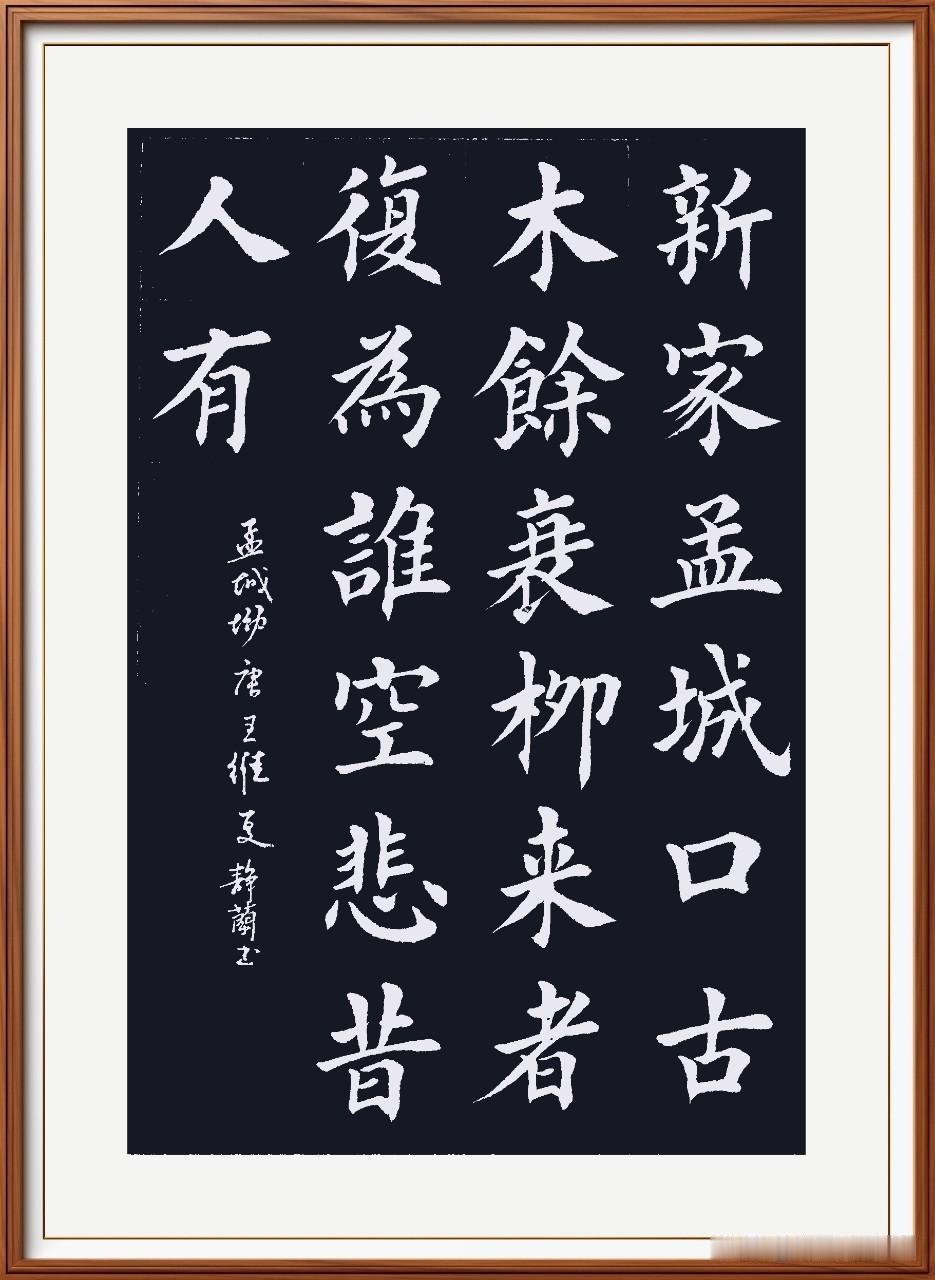 新家孟城口古
木餘衰柳来者
復為誰空悲昔
人有
孟城坳唐王維夏静蘭书